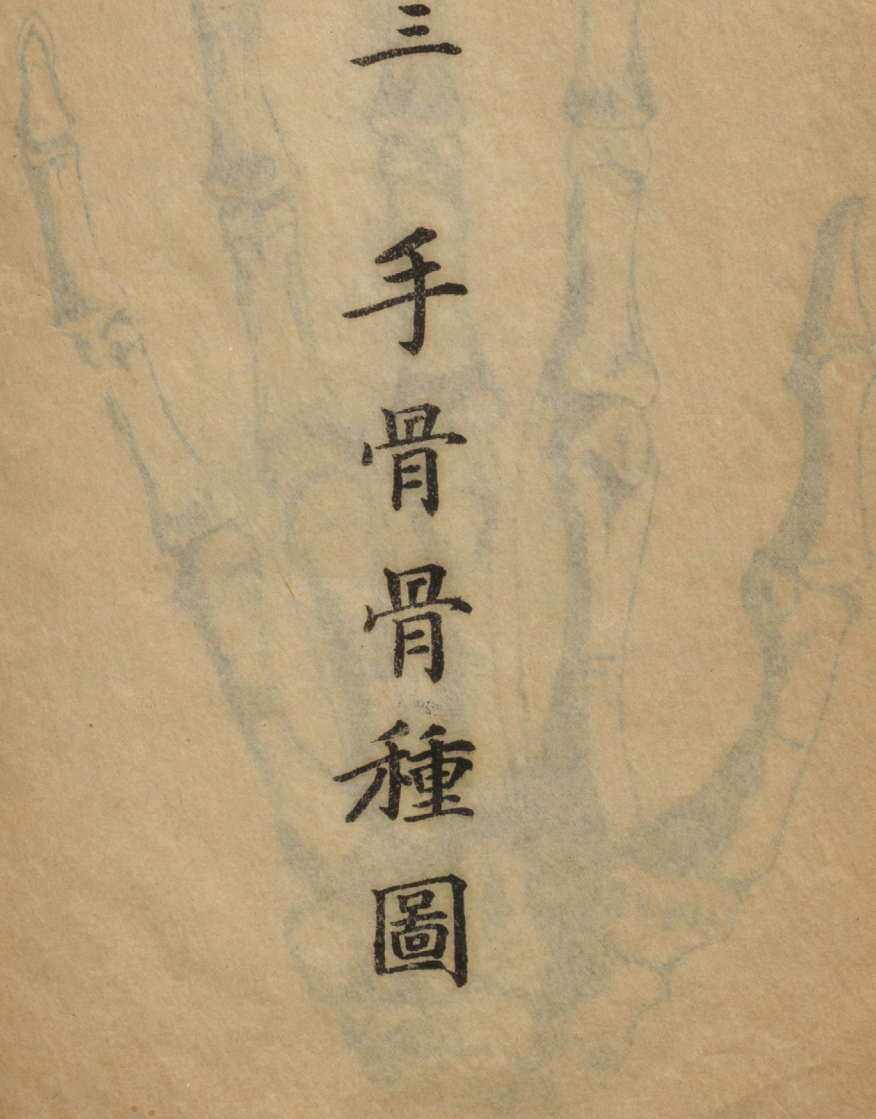 三 手骨骨種圖